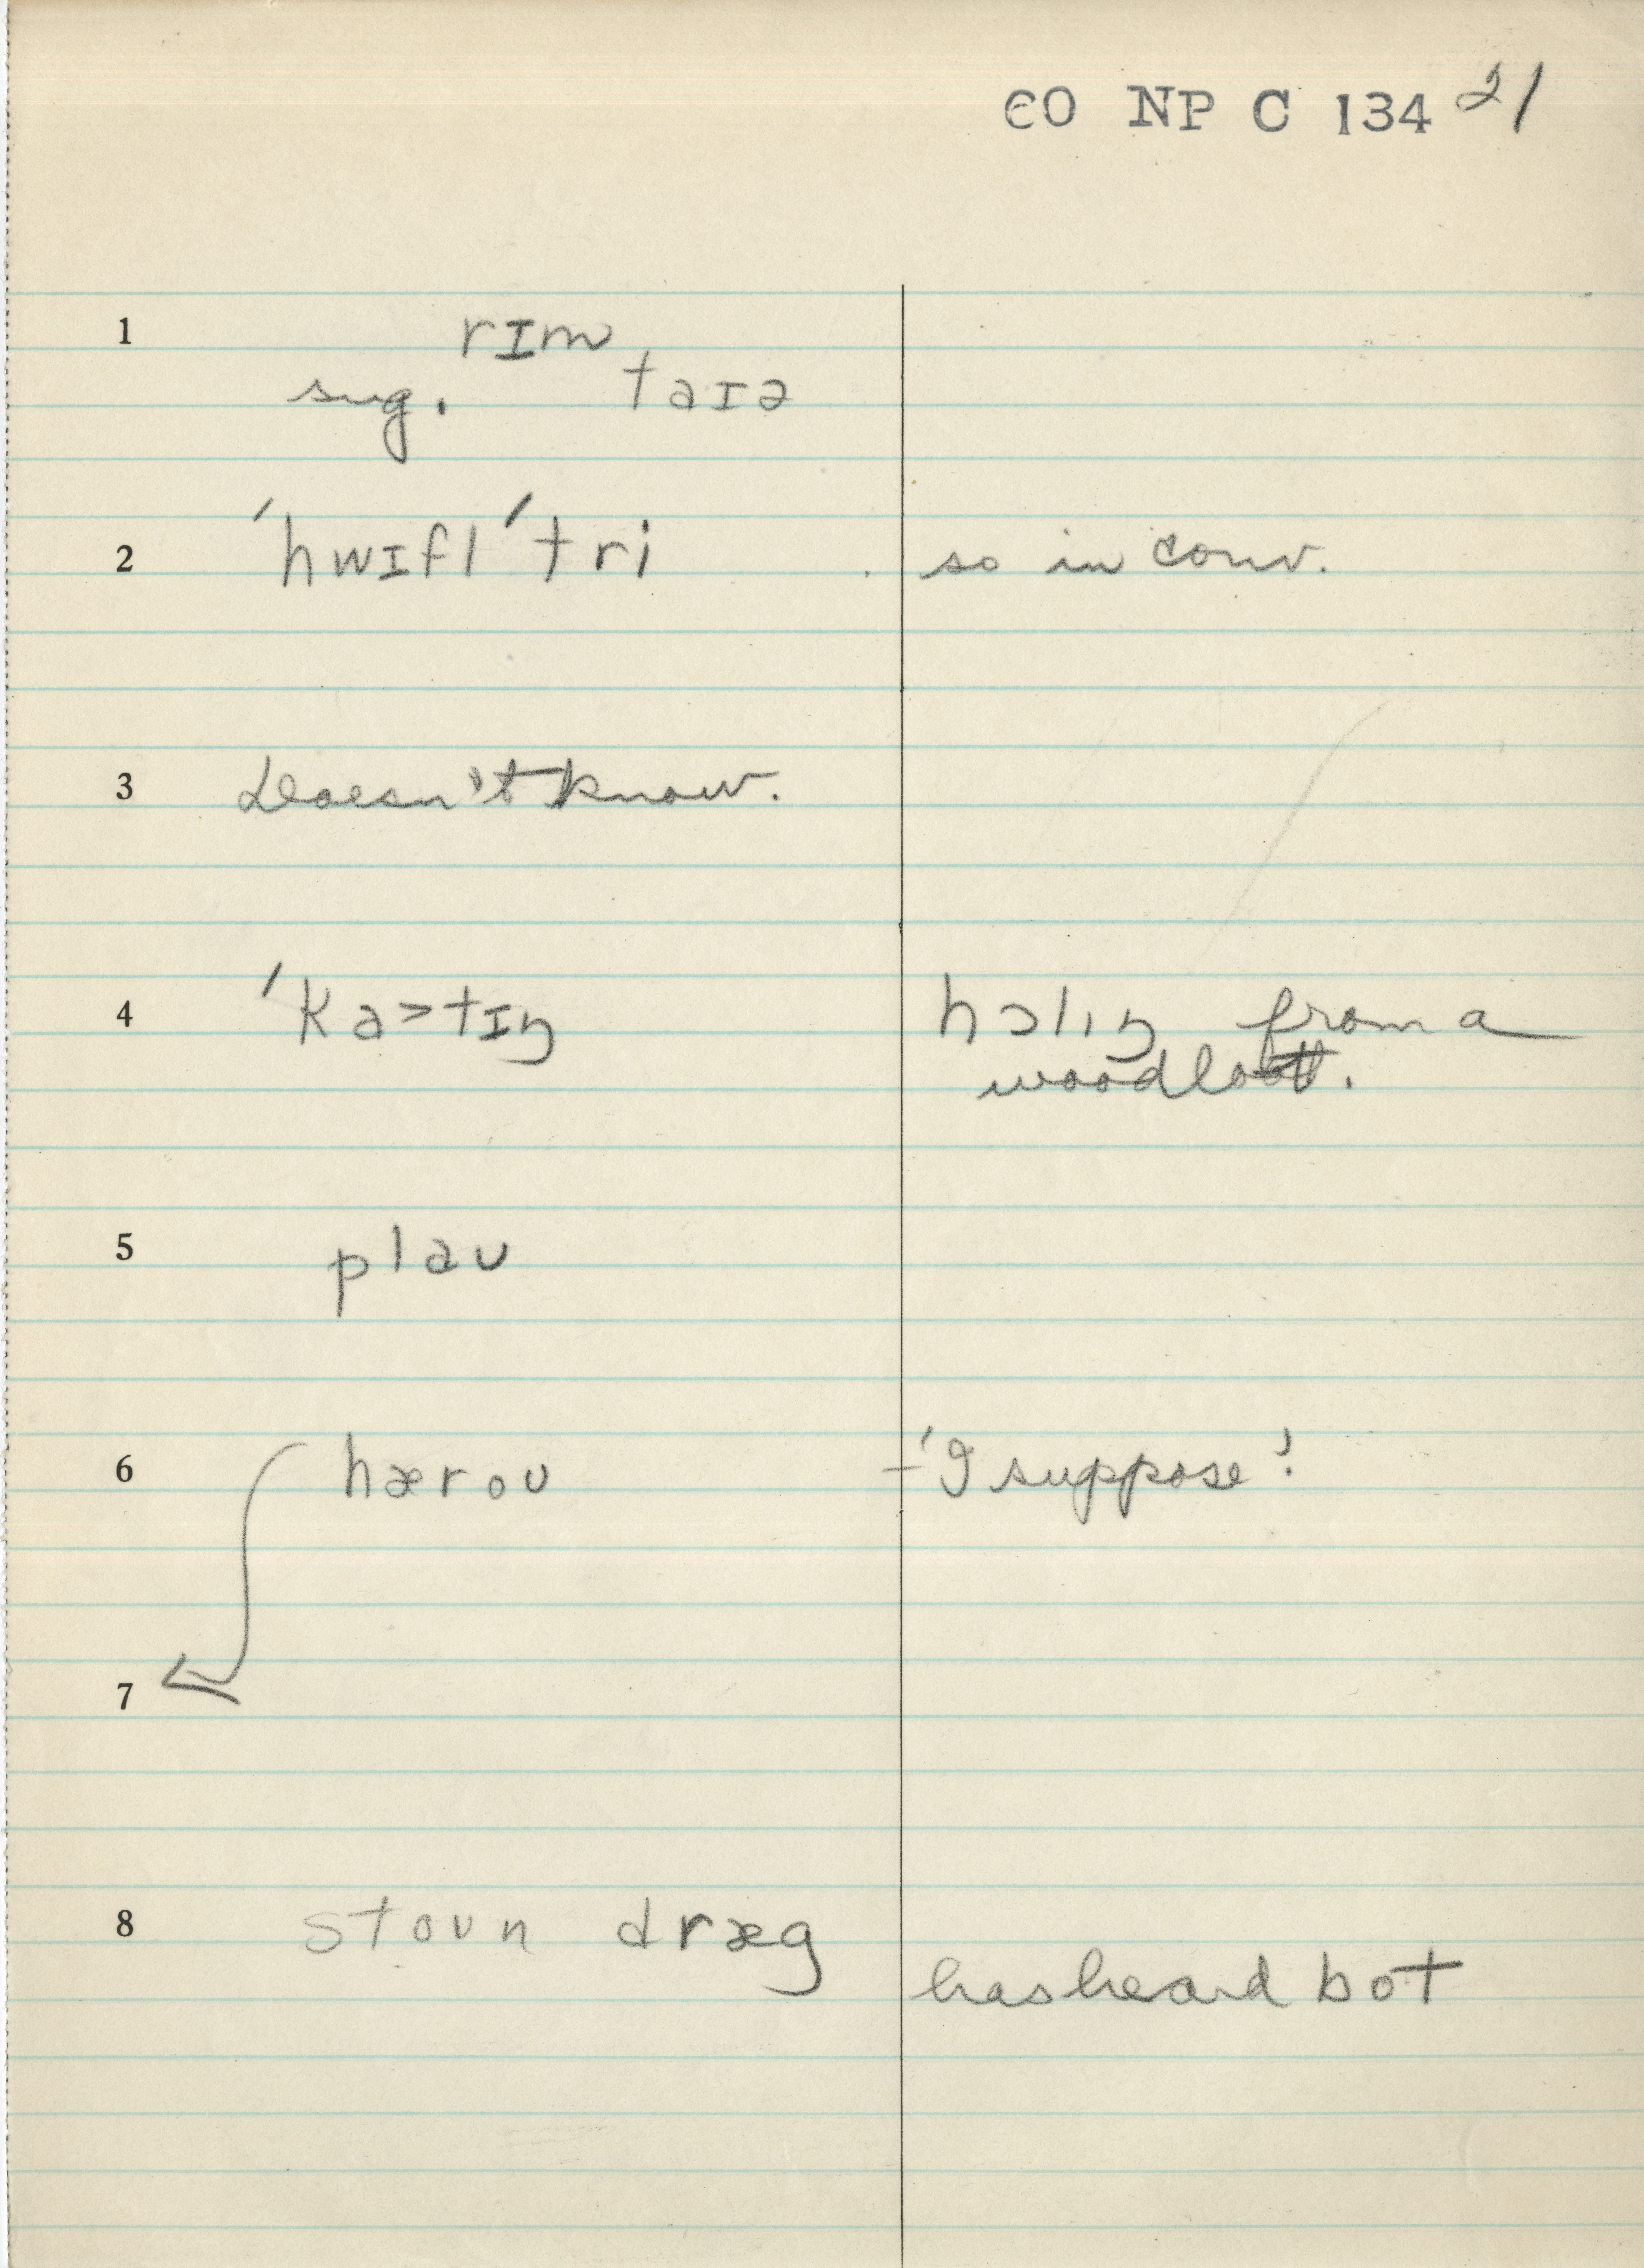 EO NP C 134 21
1 rɪm
sug. taɪə
2 ˈhwɪflˈtri so in conv.
3 Doesn't know.
4 ˈka>tɪŋ hɔlɪŋ from a
woodlot.
5 plaʊ
6 hærou – 'I suppose'.
7
8 stoun dræg
has heard bot